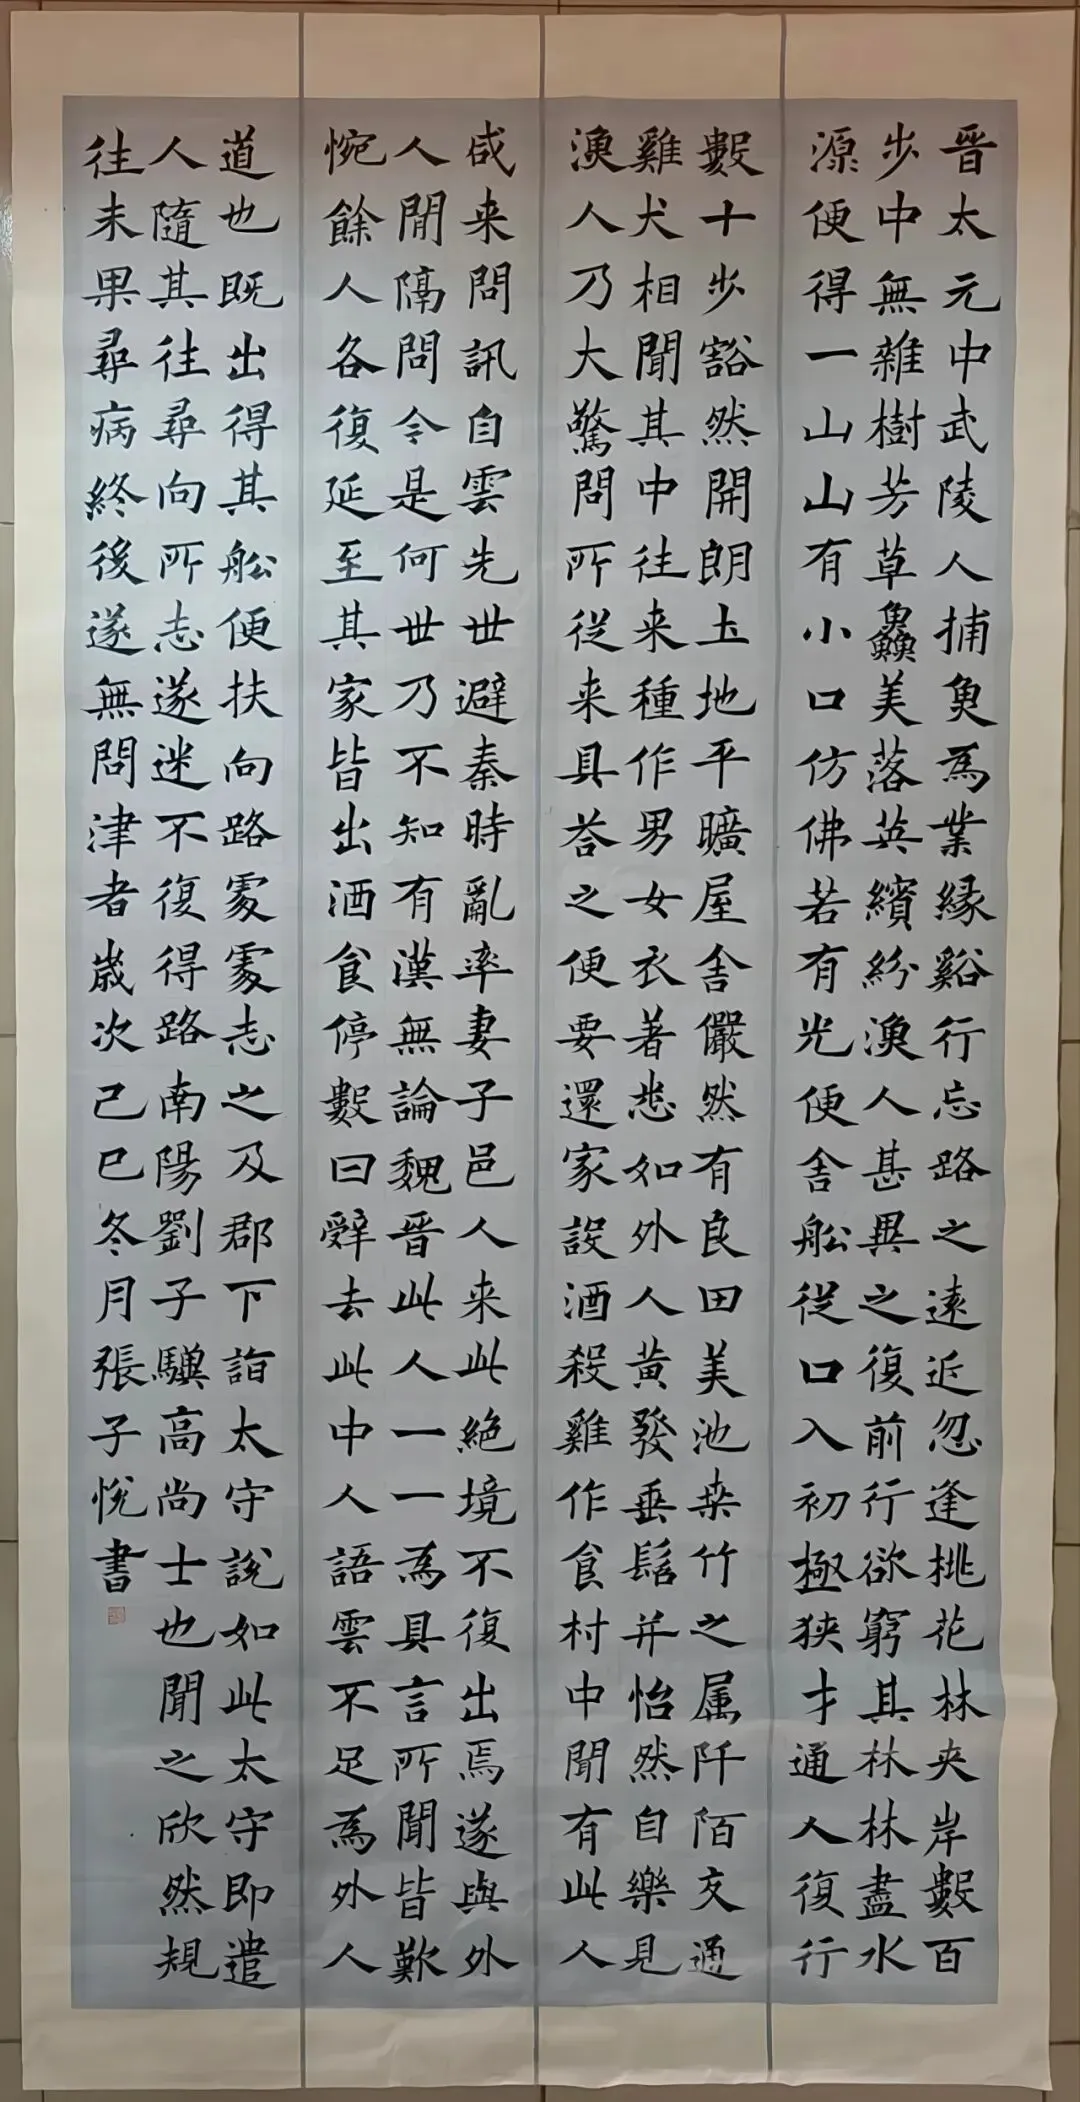 晋太元中武陵人捕魚為業緣谿行忘路之遠近忽逢桃花林夾岸數百
步中無雜樹芳草鱻美落英繽紛漁人甚異之復前行欲窮其林林盡水
源便得一山山有小口仿佛若有光便舎船從口入初極狹才通人復行
數十步豁然開朗土地平曠屋舎儼然有良田美池桒竹之属阡陌交通
雞犬相聞其中往来種作男女衣著悉如外人黃發垂髫并怡然自樂見
漁人乃大驚問所從来具荅之便要還家設酒殺雞作食村中聞有此人
咸来問訊自雲先世避秦時亂率妻子邑人来此絕境不復出焉遂與外
人間隔問今是何世乃不知有漢無論魏晋此人一一為具言所聞皆歎
惋餘人各復延至其家皆出酒食停數日辤去此中人語雲不足為外人
道也既出得其船便扶向路處處志之及郡下詣太守説如此太守即遣
人隨其往尋向所志遂迷不復得路南陽劉子驥高尚士也聞之欣然規
往未果尋病終後遂無問津者歲次己巳冬月張子悅書